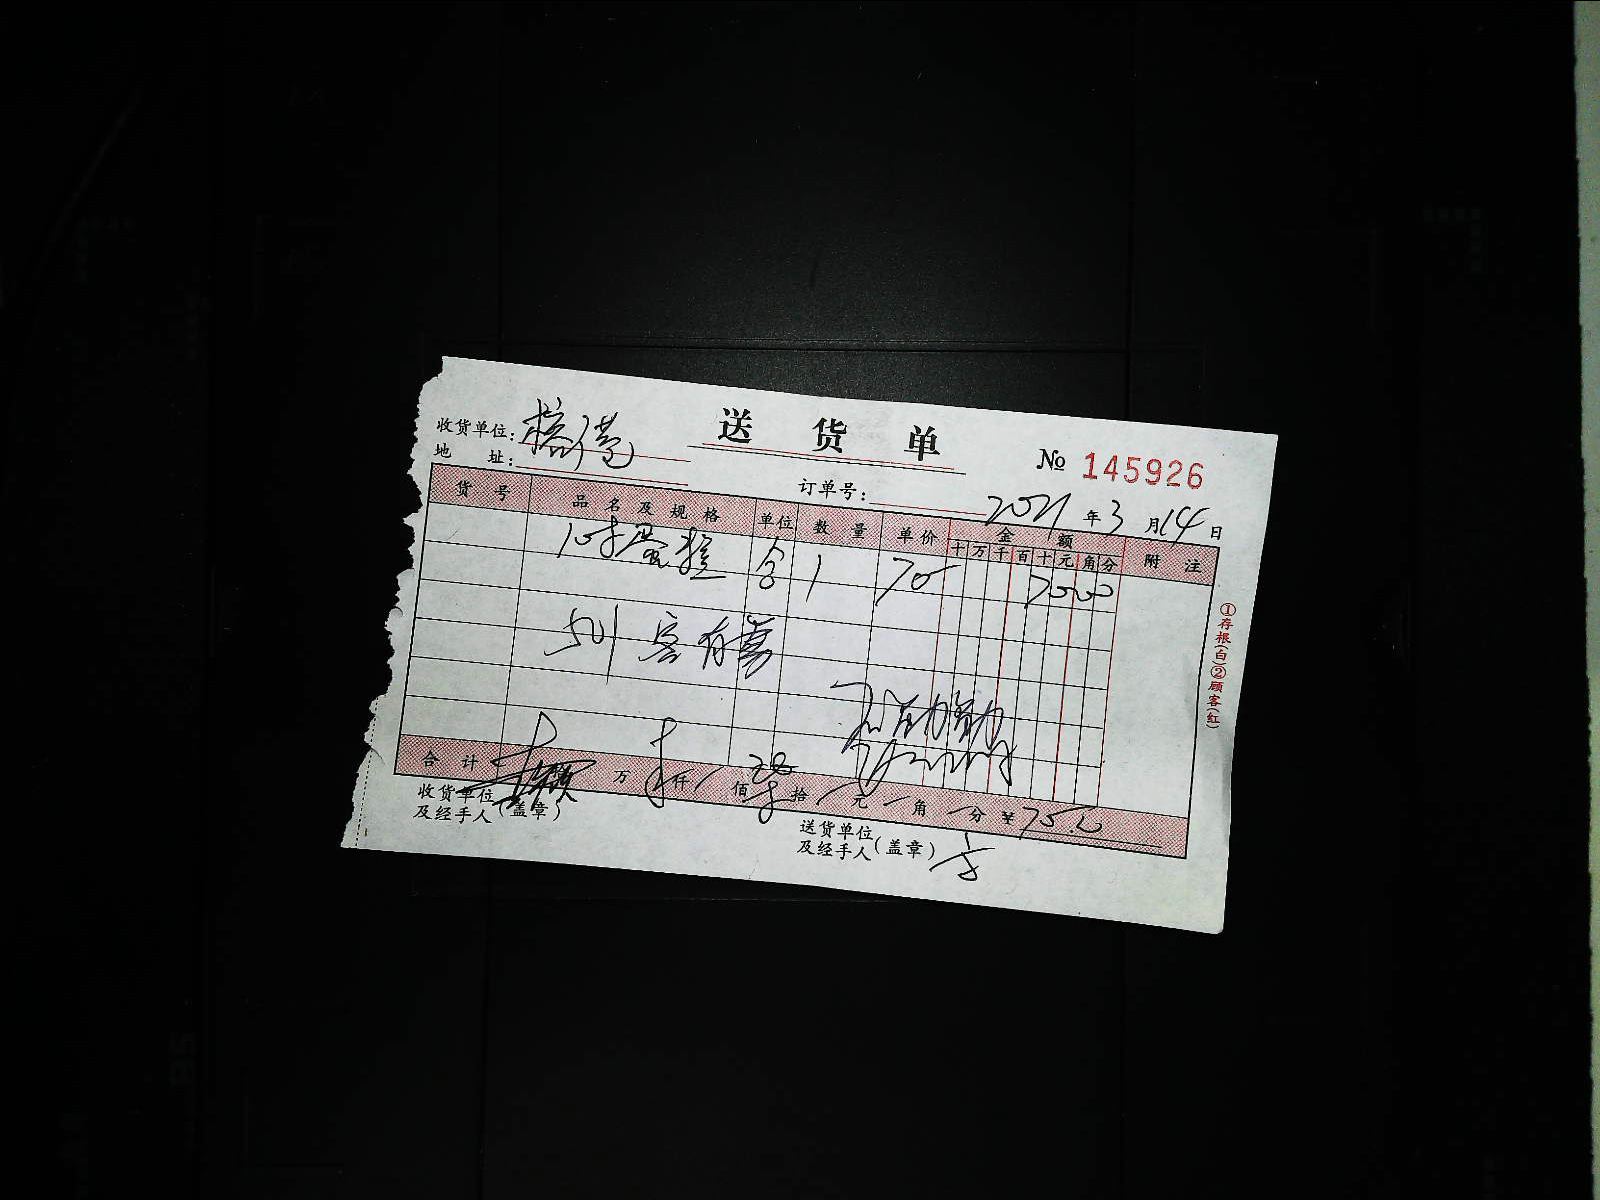 送 货 单
收货单位:
№ 145926
地 址:
订单号:
2021 年 3 月 14 日
货 号 品 名 及 规 格 单位 数 量 单 价 金 额 附 注
十 万 千 百 十 元 角 分
10寸蛋糕 1 70 7000
501 客有
合 计 万 仟 佰 拾 元 角 分 ¥
收货单位
及经手人(盖章)
送货单位
及经手人(盖章)
①存根(白)②顾客(红)